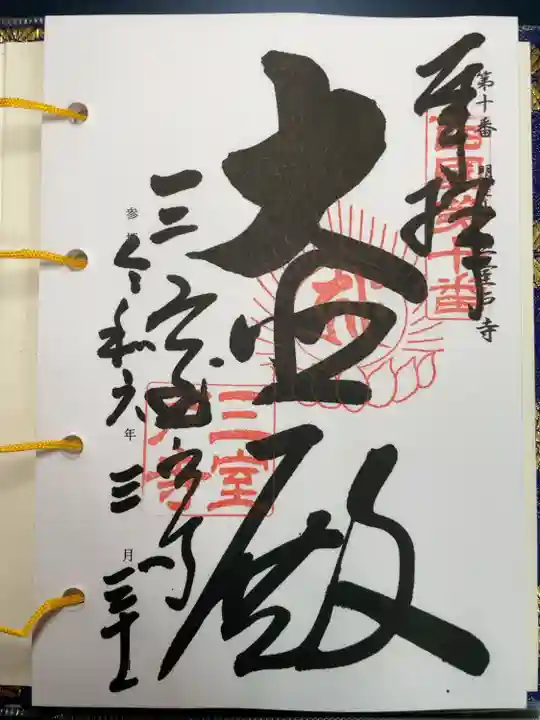 第十番 明星山 三室戸寺
奉拝
西国第十番
大悲殿
三室戸寺
三室
戸寺
参拝 令和六年三月三十一